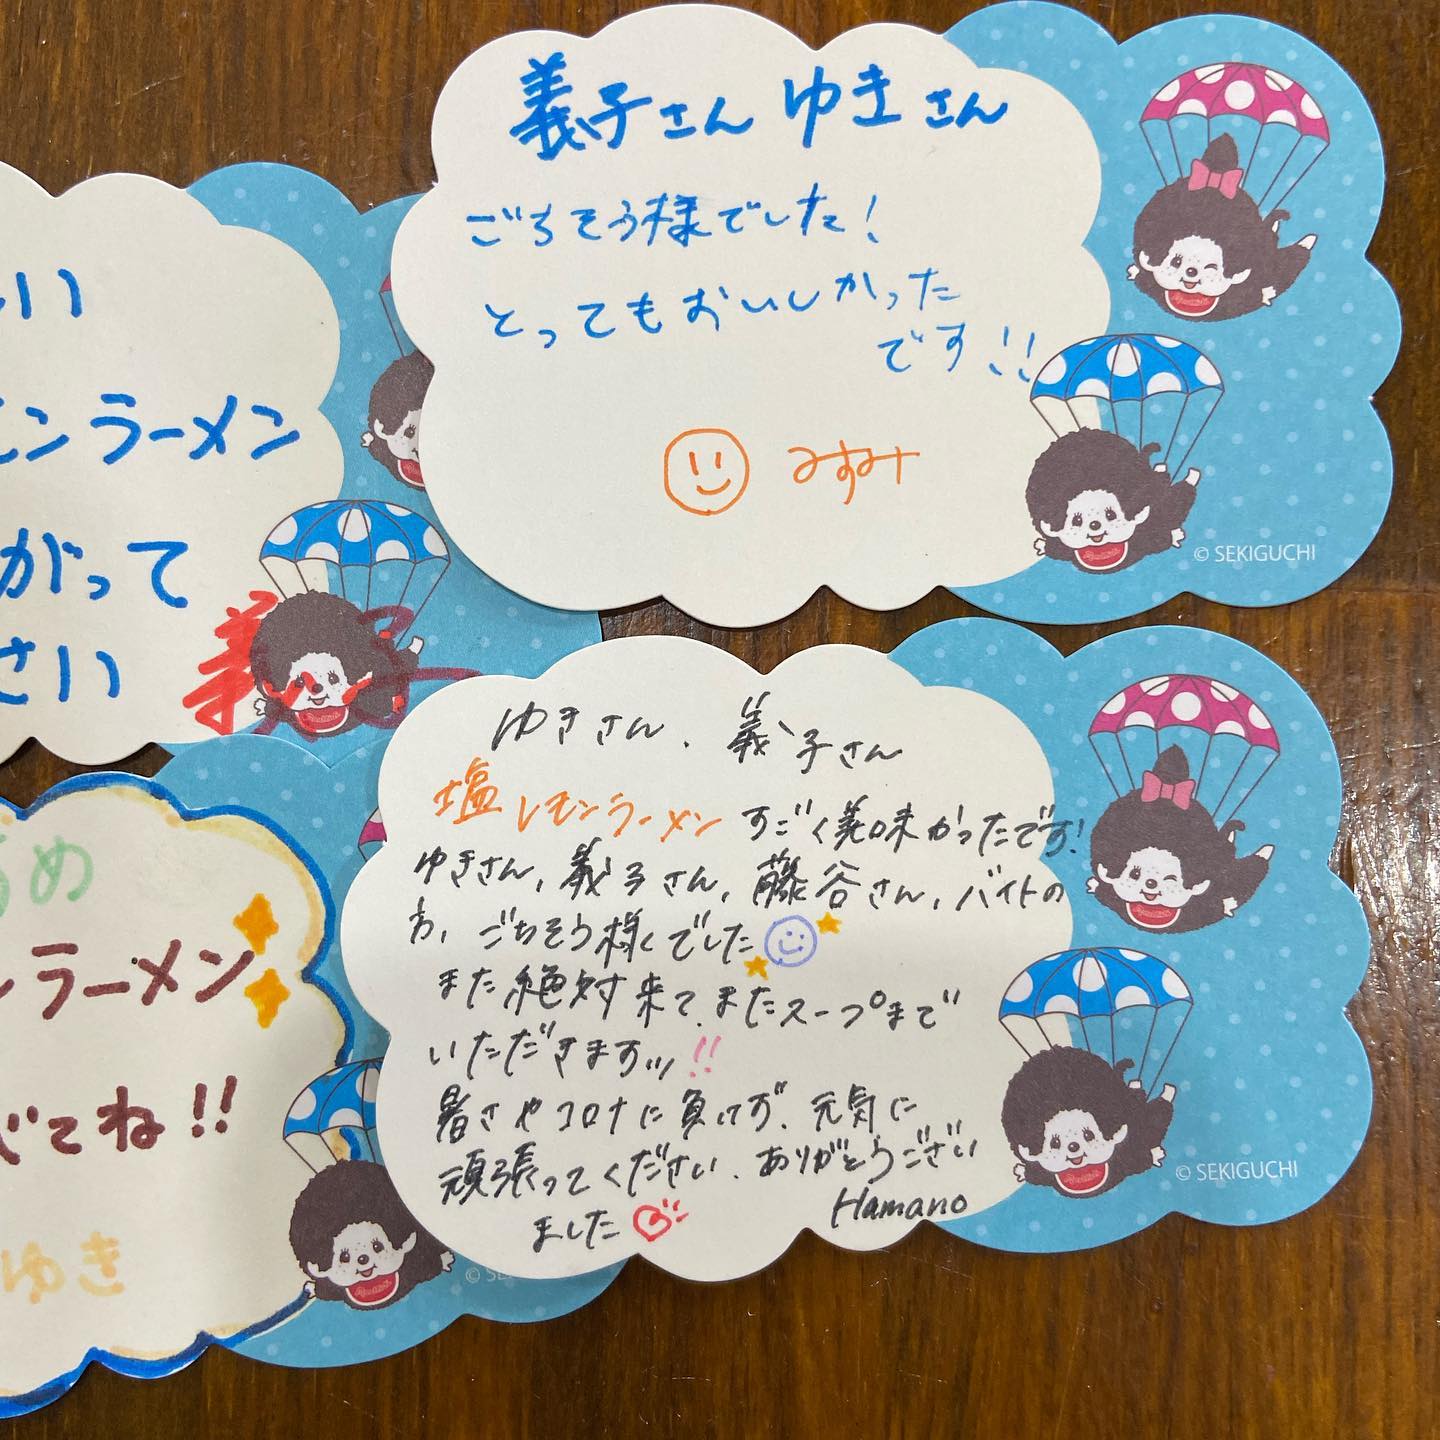 義子さん ゆきさん
ごちそう様でした!
とってもおいしかった
です!!
みすみ
© SEKIGUCHI
い
モンラーメン
がって
さい
義
ゆきさん、義子さん
塩レモンラーメン すごく美味かったです!
ゆきさん、義子さん、藤谷さん、バイトの
方、ごちそう様でした
また絶対来て、またスープまで
いただきますッ!!
暑さやコロナに負けず、元気に
頑張ってください、ありがとうござい
ました
Hamano
© SEKIGUCHI
め
ンラーメン
べてね!!
ゆき
© SE